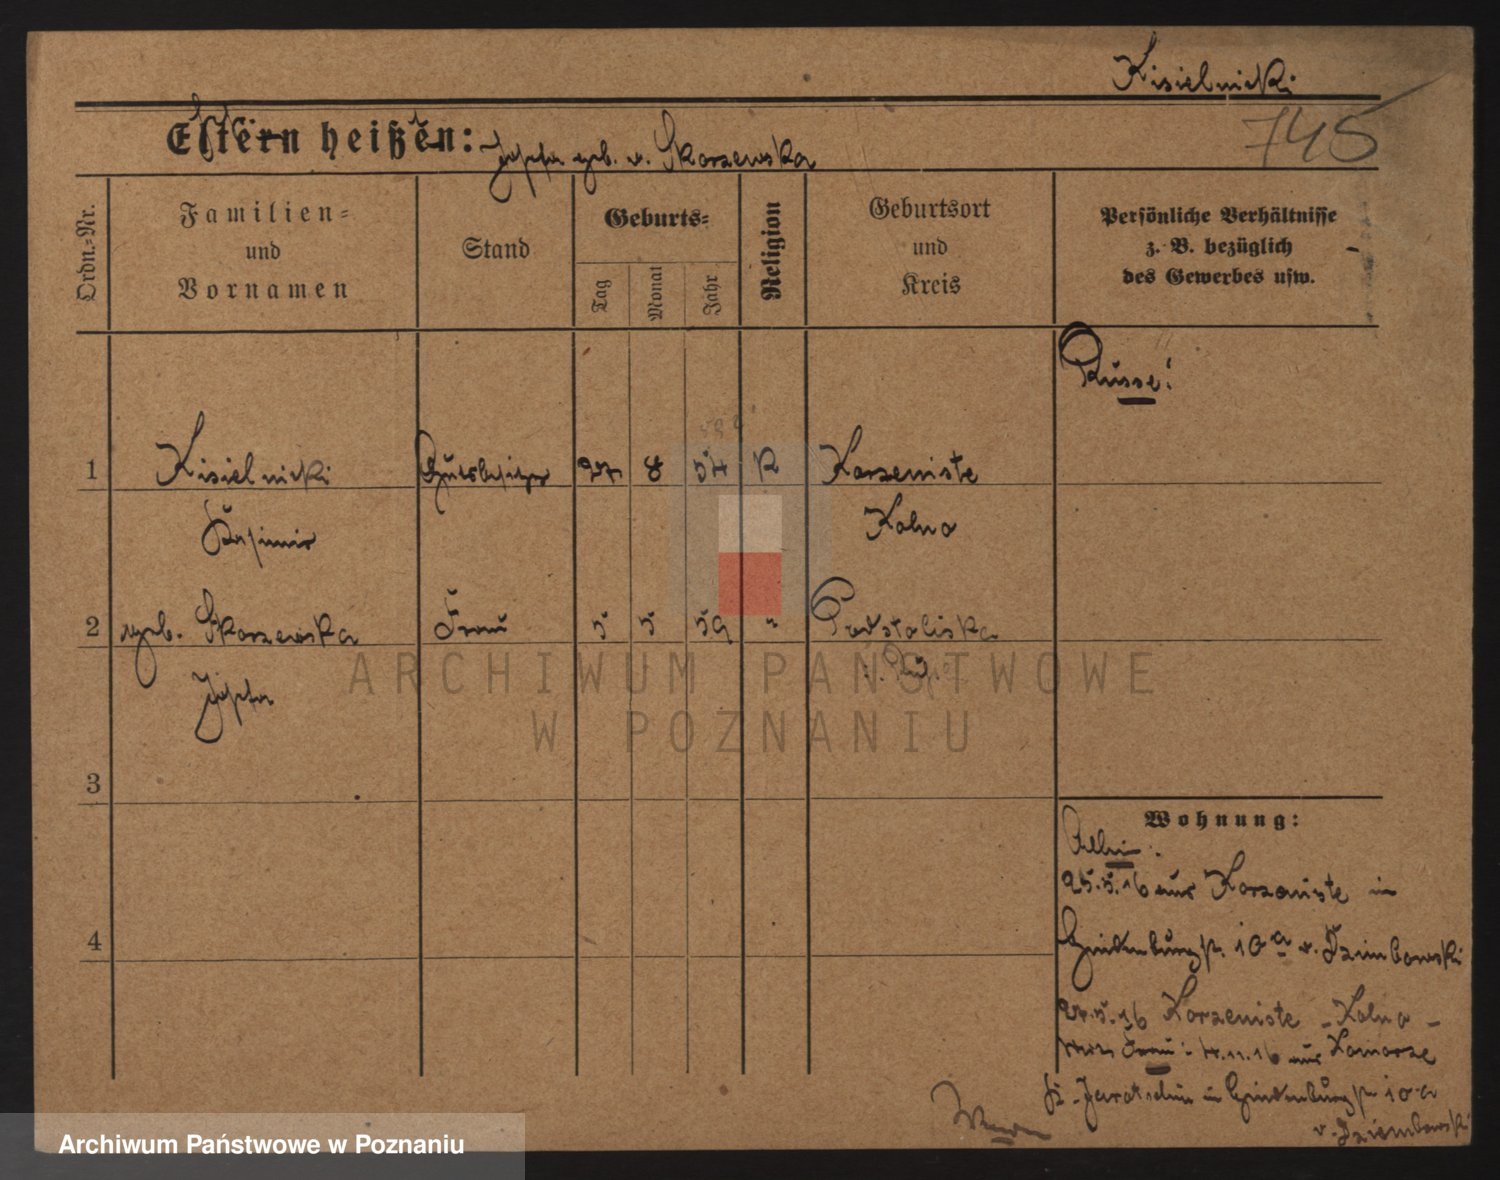 Kisielnicki
745
Eltern heißen:
Josepha geb. v. Skorzewska
Ordn.=Nr.
Familien=
und
Vornamen
Stand
Geburts=
Tag
Monat
Jahr
Religion
Geburtsort
und
Kreis
Persönliche Verhältnisse
z. B. bezüglich
des Gewerbes usw.
Russe!
1 Kisielnicki Gutsbesitzer 27 8 54 K Korzeniste
Kasimir Kolno
2 geb. Skorzewska Frau 5 5 59 " Podstoliska
Josepha
3
4
Wohnung:
Allein.
25.5.16 aus Korzeniste in
Hindenburgstr. 10a v. Dziembowski
27.5.16 Korzeniste - Kolno -
Frau: 4.11.16 aus Komorze
Kr. Jarotschin in Hindenburgstr 10a
v. Dziembowski
ARCHIWUM PAŃSTWOWE
W POZNANIU
Archiwum Państwowe w Poznaniu